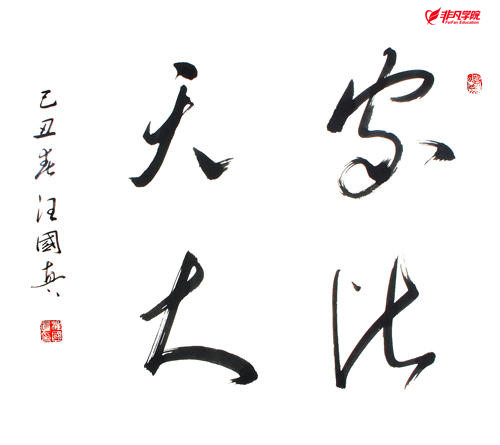 非凡学院
FeiFan Education
家比
天大
己丑春汪國真